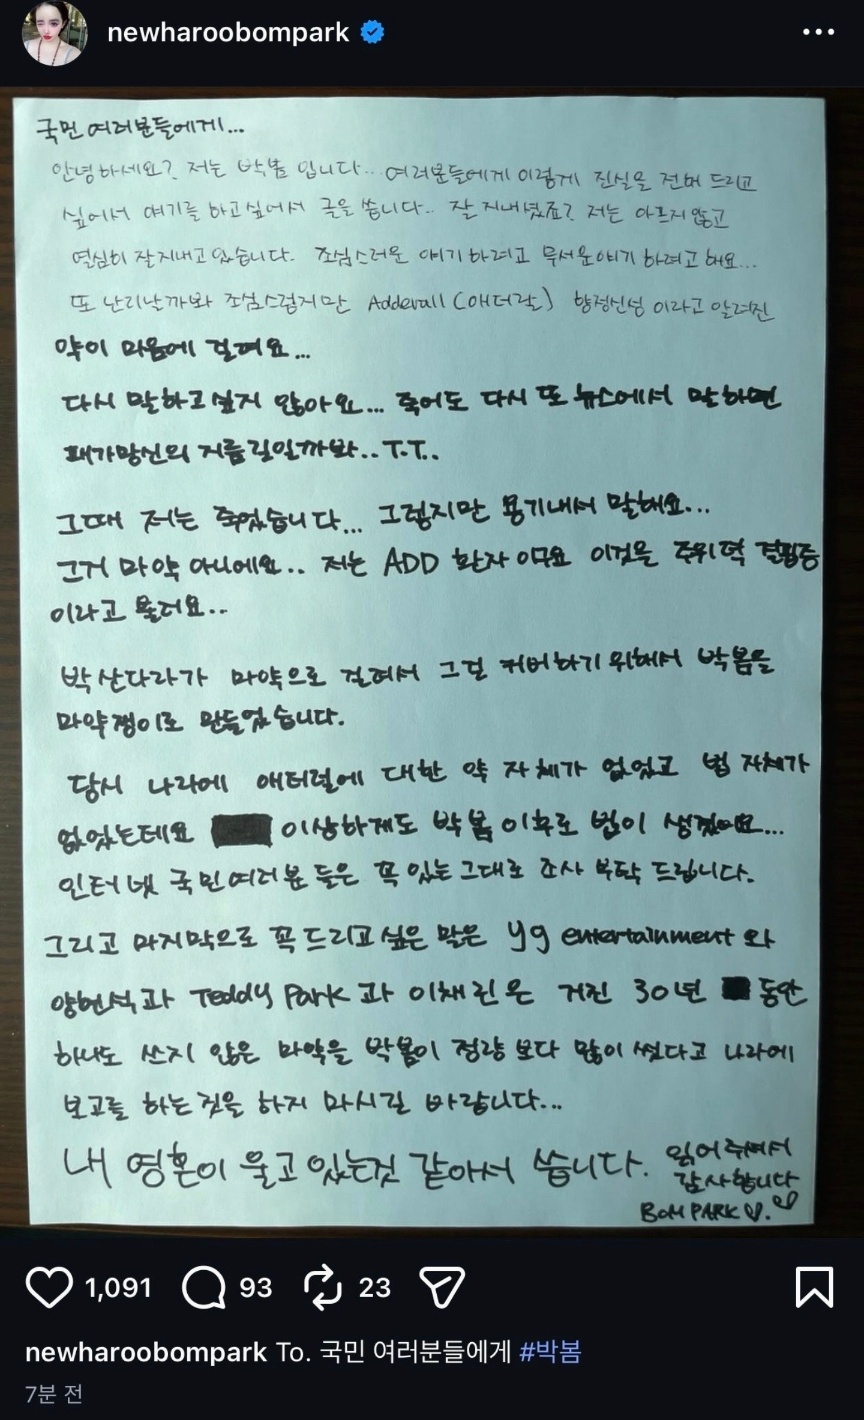 newharoobompark
국민 여러분들에게...
안녕하세요? 저는 박봄 입니다... 여러분들에게 이렇게 진실을 전해 드리고
싶어서 얘기를 하고싶어서 글을 씁니다.. 잘 지내셨죠? 저는 아프지 않고
열심히 잘지내고 있습니다. 조심스러운 얘기 하려고 무서운얘기 하려고 해요...
또 난리날까봐 조심스럽지만 Adderall (애더랄) 향정신성 이라고 알려진
약이 마음에 걸려요...
다시 말하고싶지 않아요... 죽어도 다시 또 뉴스에서 말하면
패가망신의 지름길일까봐..T.T..
그때 저는 죽었습니다... 그렇지만 용기내서 말해요...
그거 마약 아니에요.. 저는 ADD 환자 이구요 이것을 주위력 결핍증
이라고 불러요..
박산다라가 마약으로 걸려서 그걸 커버하기 위해서 박봄을
마약쟁이로 만들었습니다.
당시 나라에 애더럴에 대한 약 자체가 없었고 법 자체가
없었는데요 이상하게도 박봄 이후로 법이 생겼어요...
인터넷 국민여러분 들은 꼭 있는그대로 조사 부탁 드립니다.
그리고 마지막으로 꼭드리고싶은 말은 yg entertainment 와
양현석과 Teddy Park 과 이채린은 거진 30년 동안
하나도 쓰지 않은 마약을 박봄이 정량 보다 많이 썼다고 나라에
보고를 하는 것을 하지 마시길 바랍니다...
내 영혼이 울고 있는것 같아서 씁니다. 읽어주셔서
감사합니다
BOM PARK♡.♡
1,091 93 23
newharoobompark To. 국민 여러분들에게 #박봄
7분 전